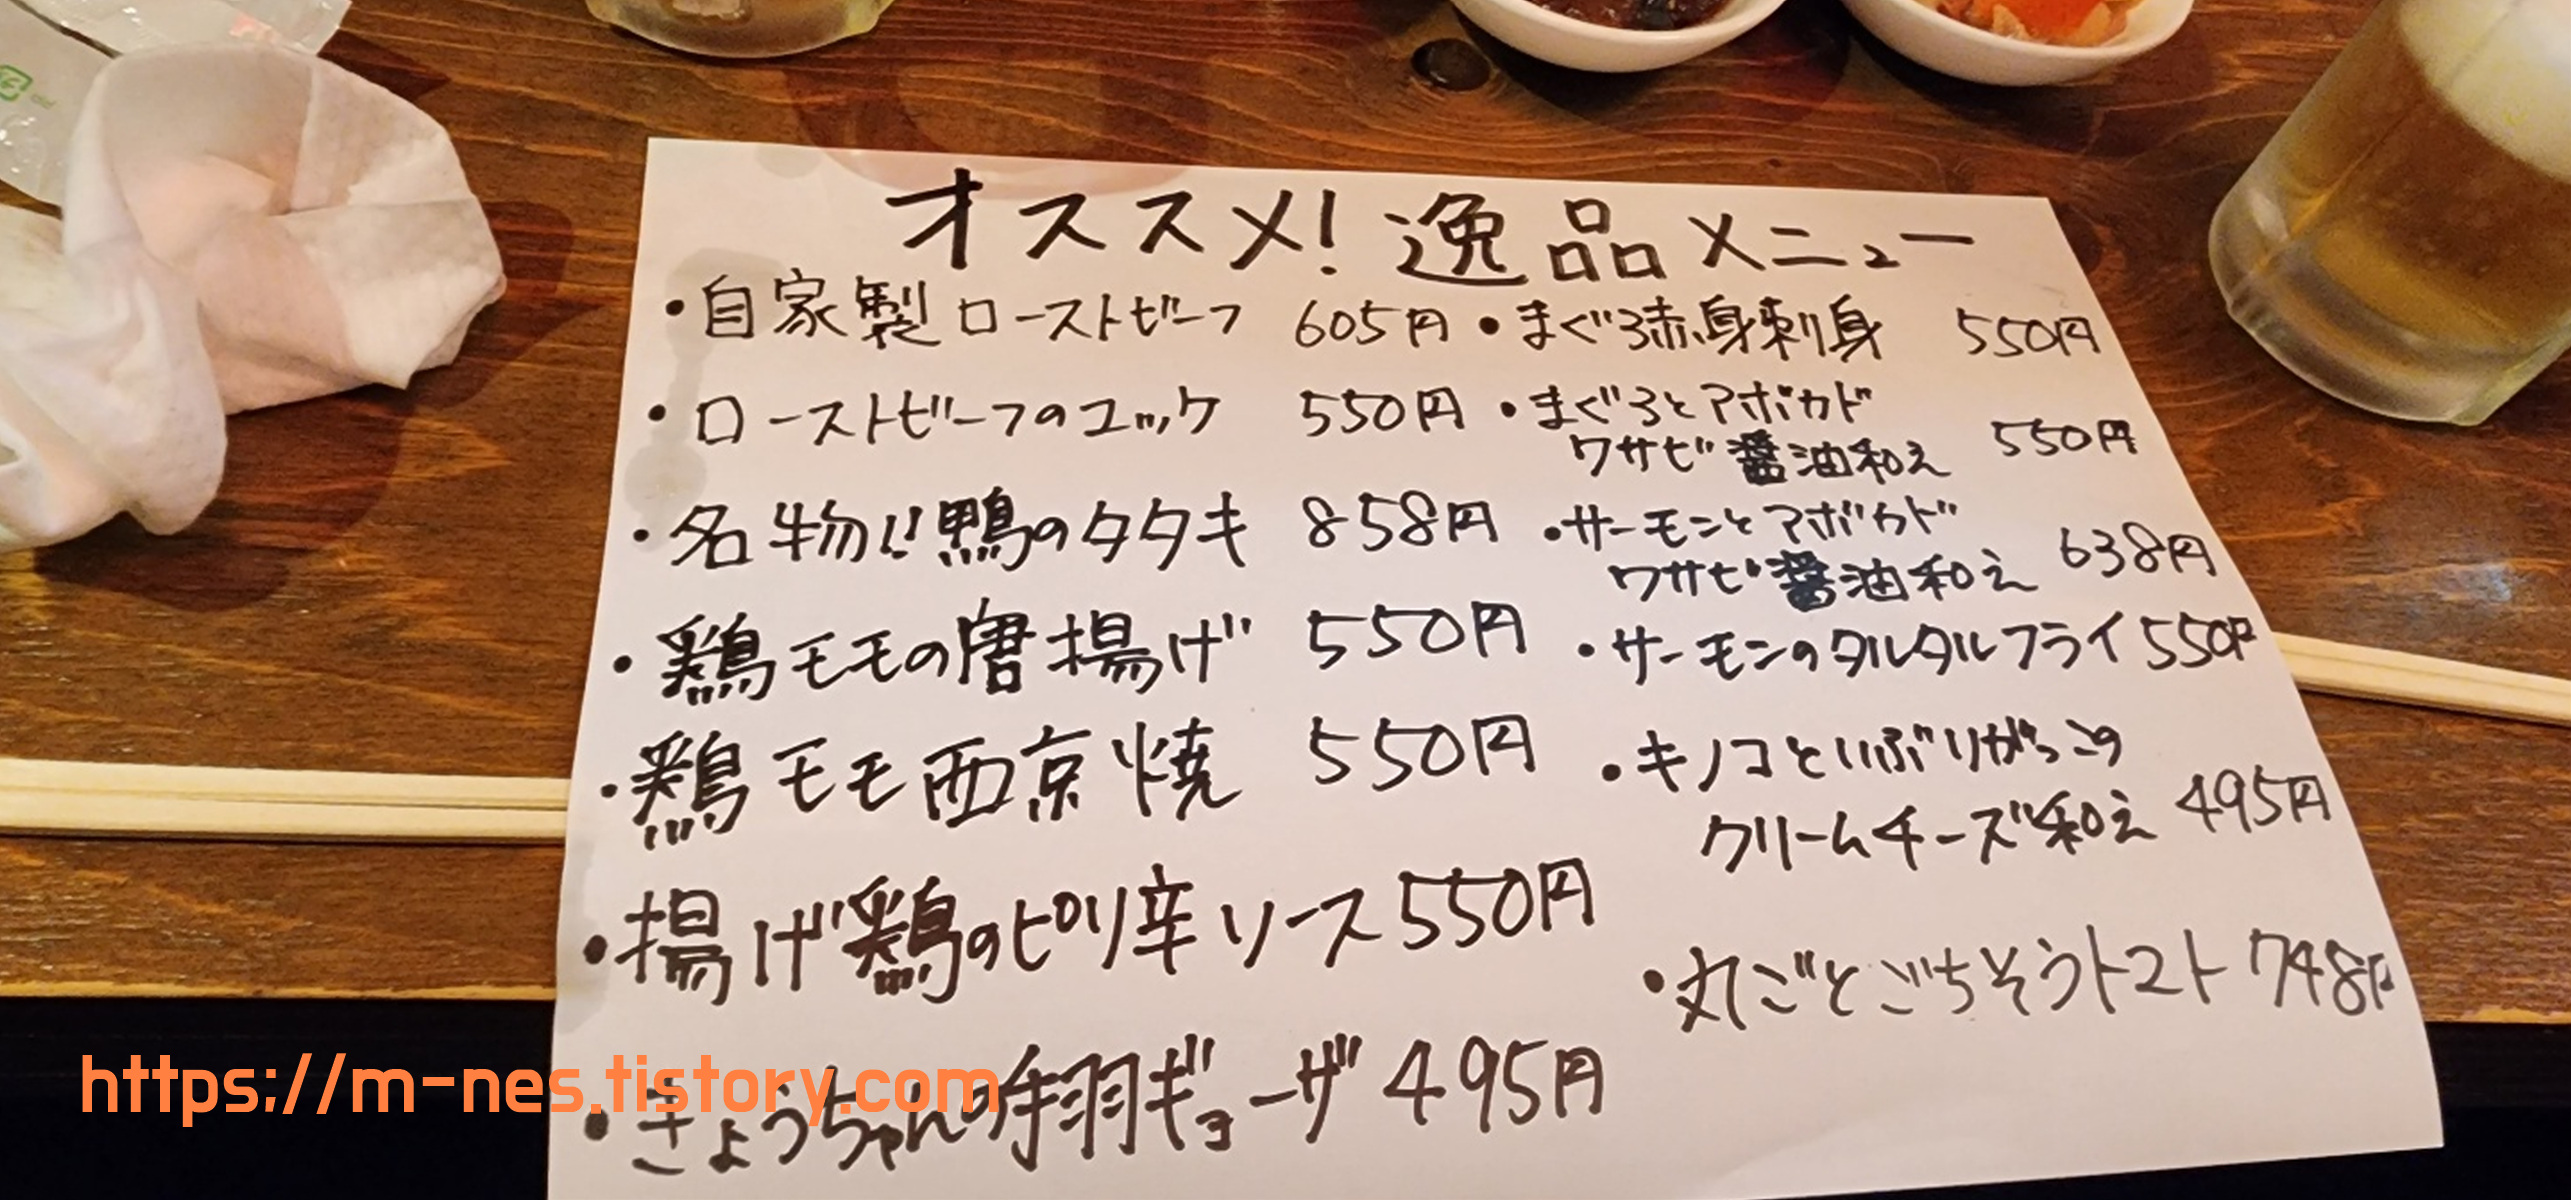 オススメ!逸品メニュー
・自家製ローストビーフ 605円
・ローストビーフのユッケ 550円
・名物!!鴨のタタキ 858円
・鶏モモの唐揚げ 550円
・鶏モモ西京焼 550円
・揚げ鶏のピリ辛ソース 550円
・きょうちゃんの手羽ギョーザ 495円
・まぐろ赤身刺身 550円
・まぐろとアボカド
ワサビ醤油和え 550円
・サーモンとアボカド
ワサビ醤油和え 638円
・サーモンのタルタルフライ 550円
・キノコといぶりがっこの
クリームチーズ和え 495円
・丸ごとごちそうトマト 748円
https://m-nes.tistory.com